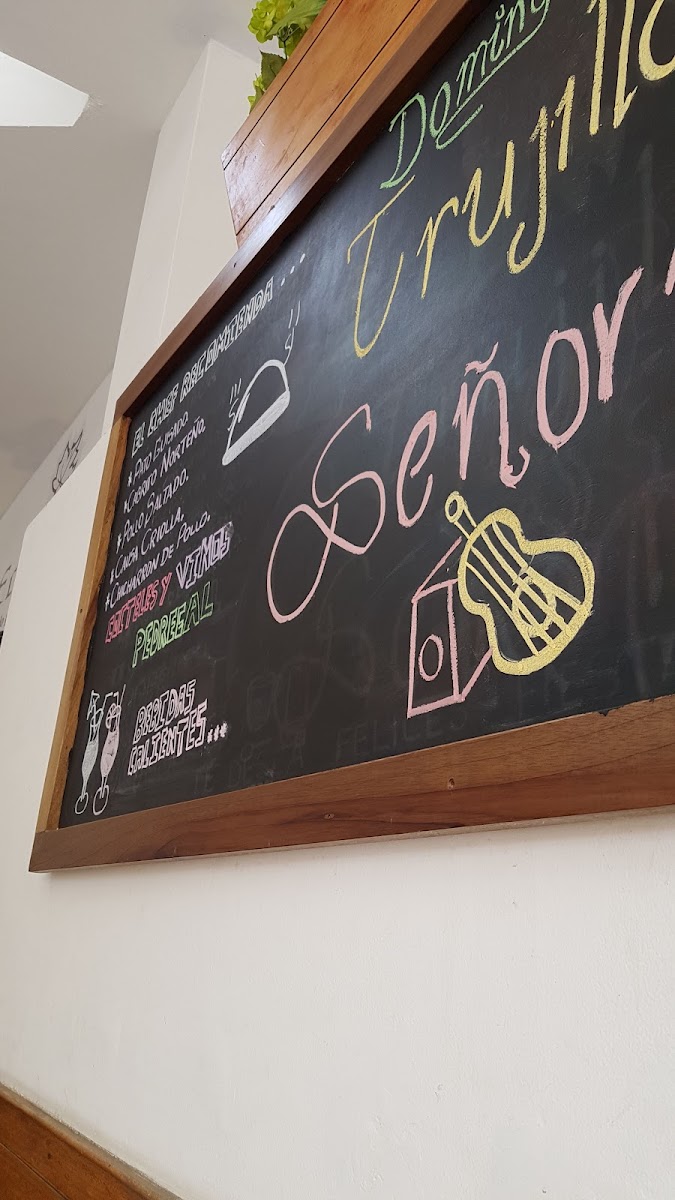 Doming
Trujillo
Señor
EL CHEF RECOMIENDA...
*PATO GUISADO.
*CABRITO NORTEÑO.
*POLLO SALTADO.
*CAUSA CRIOLLA.
*CHICHARRON DE POLLO.
COCTELES Y VINOS
PEDREGAL
BEBIDAS
CALIENTES...